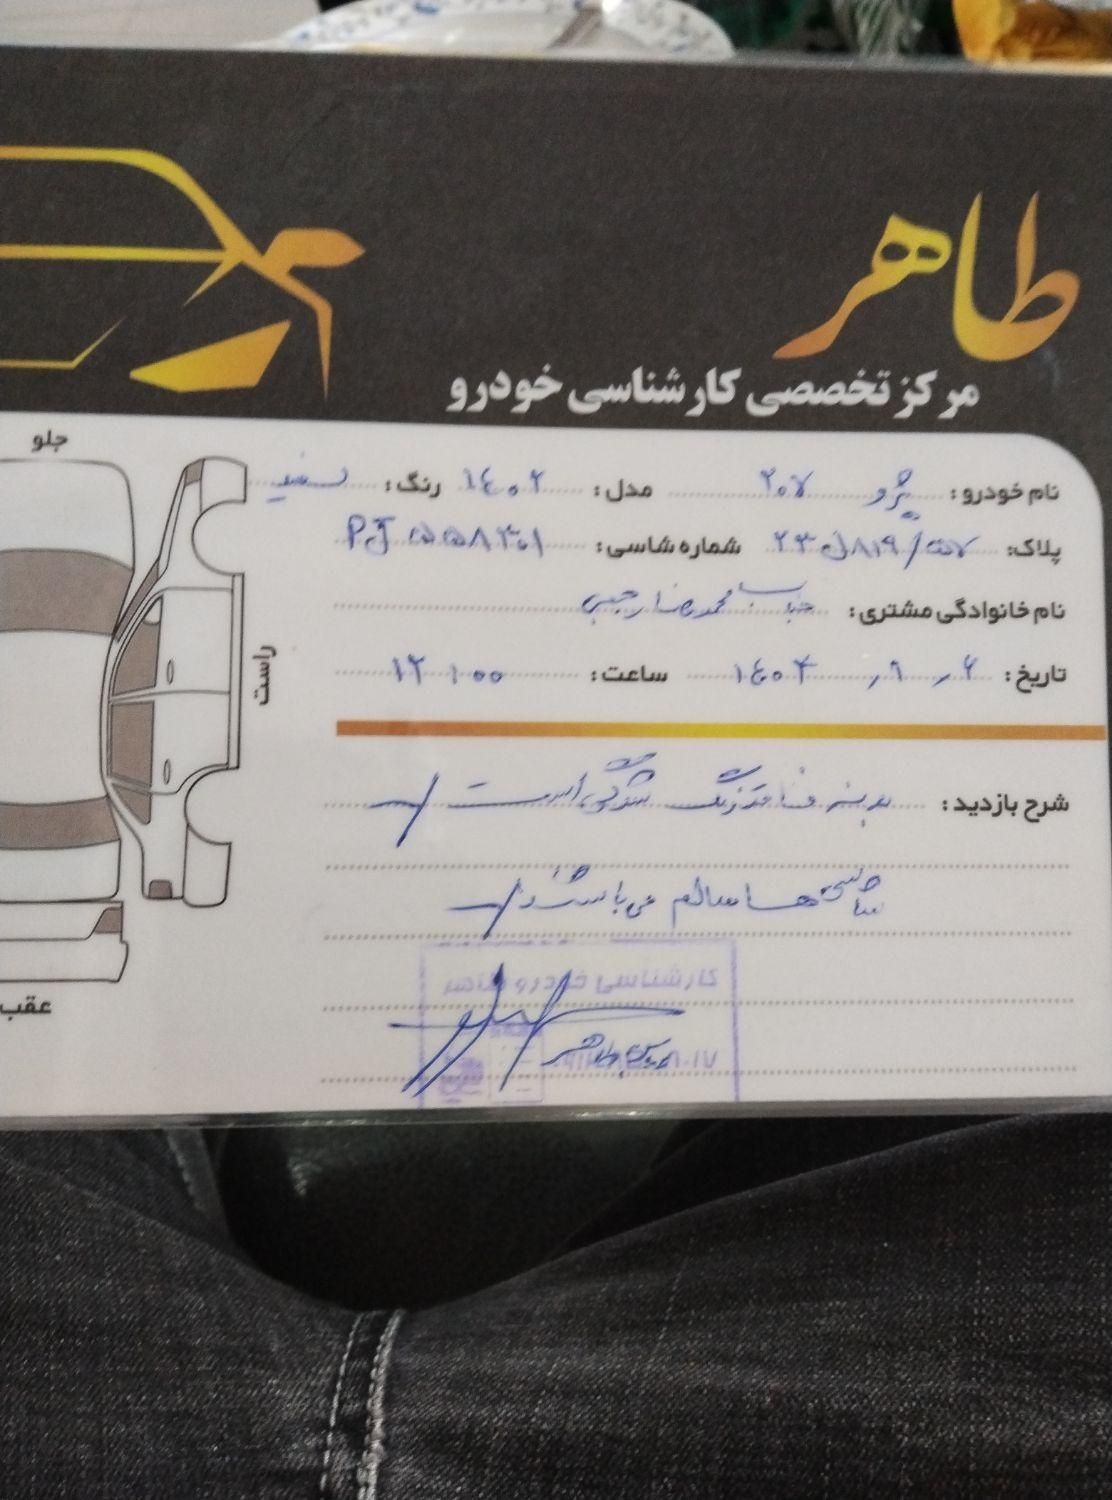 طاهر
مرکز تخصصی کارشناسی خودرو
جلو
نام خودرو: پژو ۲۰۷ مدل: ۱۴۰۲ رنگ: سفید
پلاک: ۲۳ل۸۱۹/ شماره شاسی: PJ۵۵۸۳۰۱
نام خانوادگی مشتری: جناب محمدرضا رجبی
تاریخ: ۱۴۰۴ ساعت: ۱۲:۰۰
راست
شرح بازدید: بدنه فاقد رنگ شدگی است
شاسی‌ها سالم می‌باشند
عقب
کارشناسی خودرو طاهر